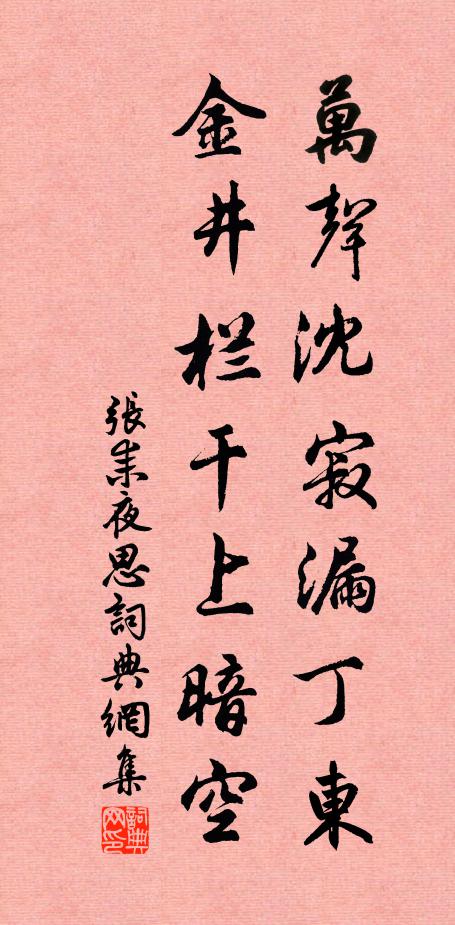 萬聲沈寂漏丁東
金井栏干上暗空
張耒夜思詞典網集
詞典网印